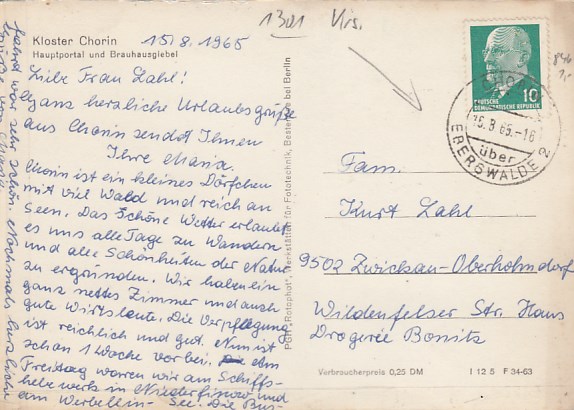 1301 Krs.
Kloster Chorin
Hauptportal und Brauhausgiebel
15.8.1965
Liebe Frau Lahl!
Ganz herzliche Urlaubsgrüße
aus Chorin sendet Ihnen
Ihre Maria.
Chorin ist ein kleines Dörfchen
mit viel Wald und reich an
Seen. Das Schöne Wetter erlaubt
es uns alle Tage zu Wandern
und alle Schönheiten der Natur
zu ergründen. Wir haben ein
ganz nettes Zimmer und auch
gute Wirtsleute. Die Verpflegung
ist reichlich und gut. Nun ist
schon 1 Woche vorbei. Am
Freitag waren wir am Schiffs-
hebewerk in Niederfinow und
am Werbellin-See. Die Bus-
fahrt war sehr schön. Nochmals herzliche
Grüße von
PGH „Rotophot", Werkstätten für Fototechnik, Bestensee bei Berlin
10
DEUTSCHE
DEMOKRATISCHE REPUBLIK
CHORIN
15.8.65.-16
über
EBERSWALDE 2
Fam.
Kurt Lahl
9502 Zwickau-Oberhohndorf
Wildenfelser Str. Haus
Drogerie Bonitz
Verbraucherpreis 0,25 DM
I 12 5 F 34-63